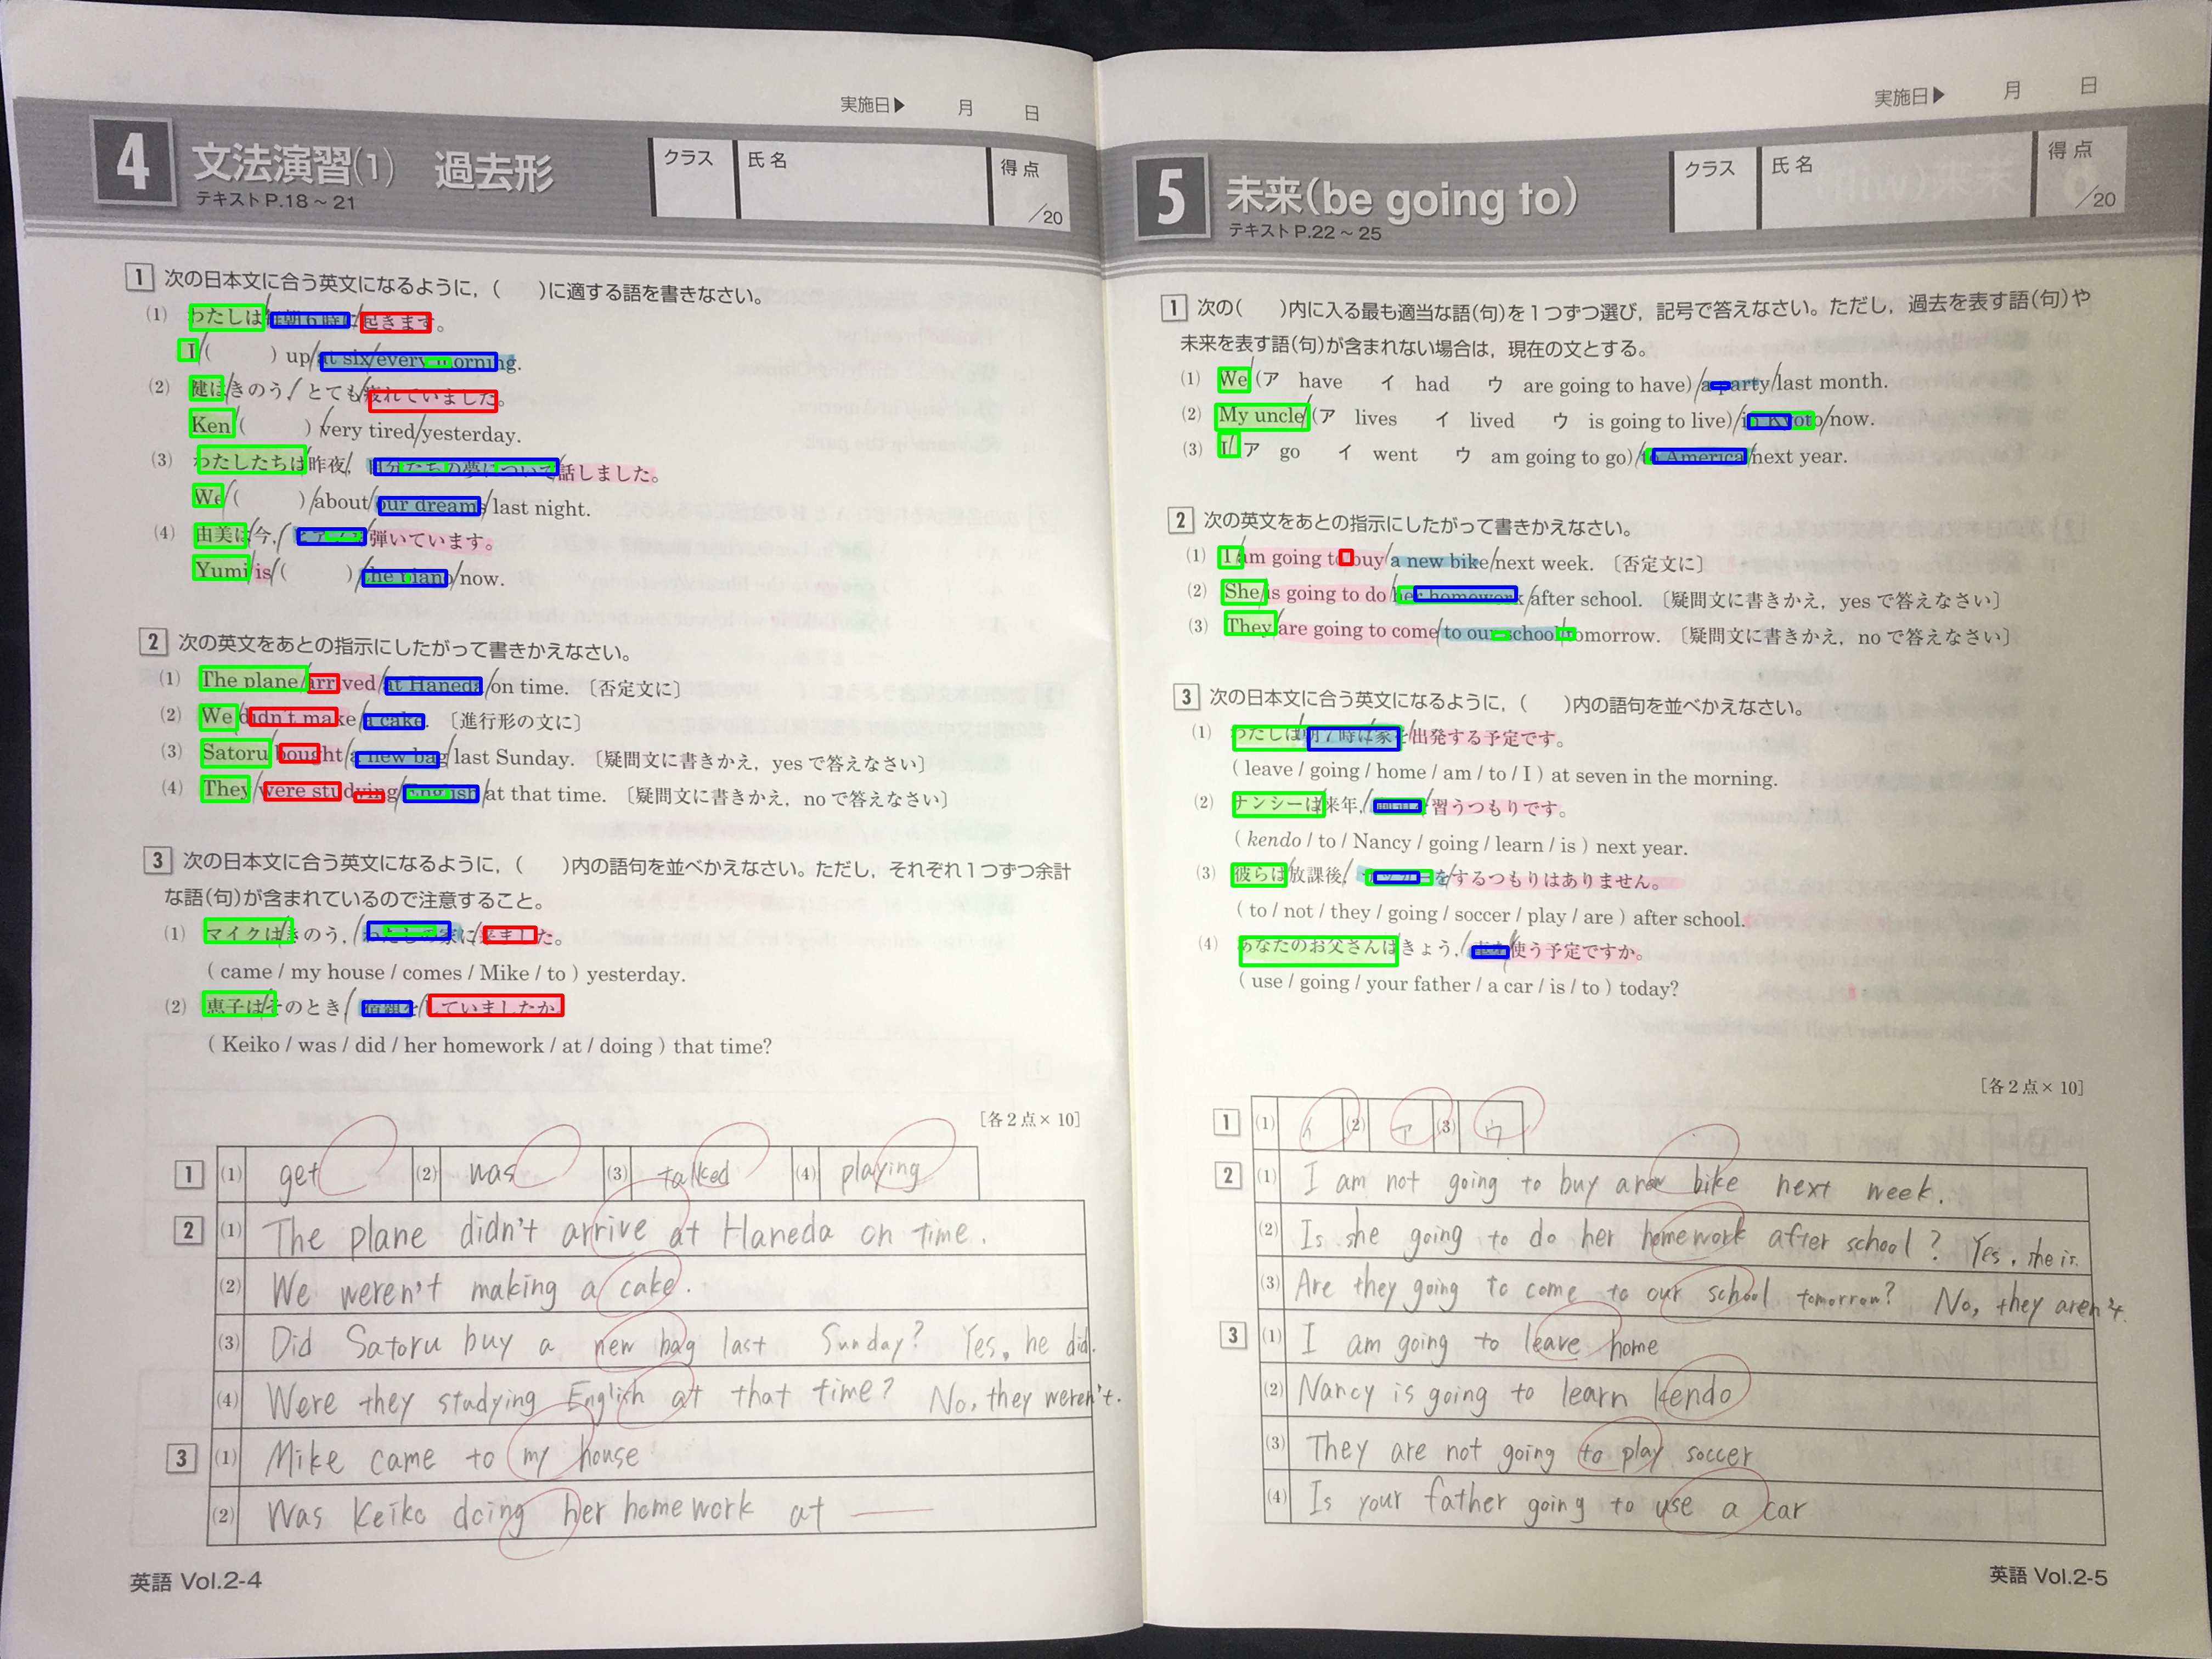 実施日▶ 月 日
4 文法演習(1) 過去形
テキストP.18～21
クラス 氏名 得点 /20
1 次の日本文に合う英文になるように，( )に適する語を書きなさい。
(1) わたしは/毎朝6時に/起きます。
I/( ) up/at six/every morning.
(2) 健は/きのう,/とても/疲れていました。
Ken/( )/very tired/yesterday.
(3) わたしたちは/昨夜/,自分たちの夢について/話しました。
We/( )/about/our dreams/last night.
(4) 由美は/今,/ピアノを/弾いています。
Yumi/is/( )/the piano/now.
2 次の英文をあとの指示にしたがって書きかえなさい。
(1) The plane/arrived/at Haneda/on time. 〔否定文に〕
(2) We/didn't make/a cake. 〔進行形の文に〕
(3) Satoru/bought/a new bag/last Sunday. 〔疑問文に書きかえ，yesで答えなさい〕
(4) They/were studying/English/at that time. 〔疑問文に書きかえ，noで答えなさい〕
3 次の日本文に合う英文になるように，( )内の語句を並べかえなさい。ただし，それぞれ1つずつ余計
な語(句)が含まれているので注意すること。
(1) マイクは/きのう,/わたしの家に/来ました。
( came / my house / comes / Mike / to ) yesterday.
(2) 恵子は/そのとき,/宿題を/していましたか。
( Keiko / was / did / her homework / at / doing ) that time?
［各2点×10］
1 (1) get (2) was (3) talked (4) playing
2 (1) The plane didn't arrive at Haneda on time.
(2) We weren't making a cake.
(3) Did Satoru buy a new bag last Sunday? Yes, he did.
(4) Were they studying English at that time? No, they weren't.
3 (1) Mike came to my house
(2) Was Keiko doing her homework at ―
英語 Vol.2-4
実施日▶ 月 日
5 未来(be going to)
テキストP.22～25
クラス 氏名 得点 /20
1 次の( )内に入る最も適当な語(句)を1つずつ選び，記号で答えなさい。ただし，過去を表す語(句)や
未来を表す語(句)が含まれない場合は，現在の文とする。
(1) We/(ア have イ had ウ are going to have)/a party/last month.
(2) My uncle/(ア lives イ lived ウ is going to live)/in Kyoto/now.
(3) I/(ア go イ went ウ am going to go)/to America/next year.
2 次の英文をあとの指示にしたがって書きかえなさい。
(1) I/am going to buy/a new bike/next week. 〔否定文に〕
(2) She/is going to do/her homework/after school. 〔疑問文に書きかえ，yesで答えなさい〕
(3) They/are going to come/to our school/tomorrow. 〔疑問文に書きかえ，noで答えなさい〕
3 次の日本文に合う英文になるように，( )内の語句を並べかえなさい。
(1) わたしは/朝7時に/家を/出発する予定です。
( leave / going / home / am / to / I ) at seven in the morning.
(2) ナンシーは/来年,/剣道を/習うつもりです。
( kendo / to / Nancy / going / learn / is ) next year.
(3) 彼らは/放課後,/サッカーを/するつもりはありません。
( to / not / they / going / soccer / play / are ) after school.
(4) あなたのお父さんは/きょう,/車を/使う予定ですか。
( use / going / your father / a car / is / to ) today?
［各2点×10］
1 (1) イ (2) ア (3) ウ
2 (1) I am not going to buy a new bike next week.
(2) Is she going to do her homework after school? Yes, she is.
(3) Are they going to come to our school tomorrow? No, they aren't.
3 (1) I am going to leave home
(2) Nancy is going to learn kendo
(3) They are not going to play soccer
(4) Is your father going to use a car
英語 Vol.2-5